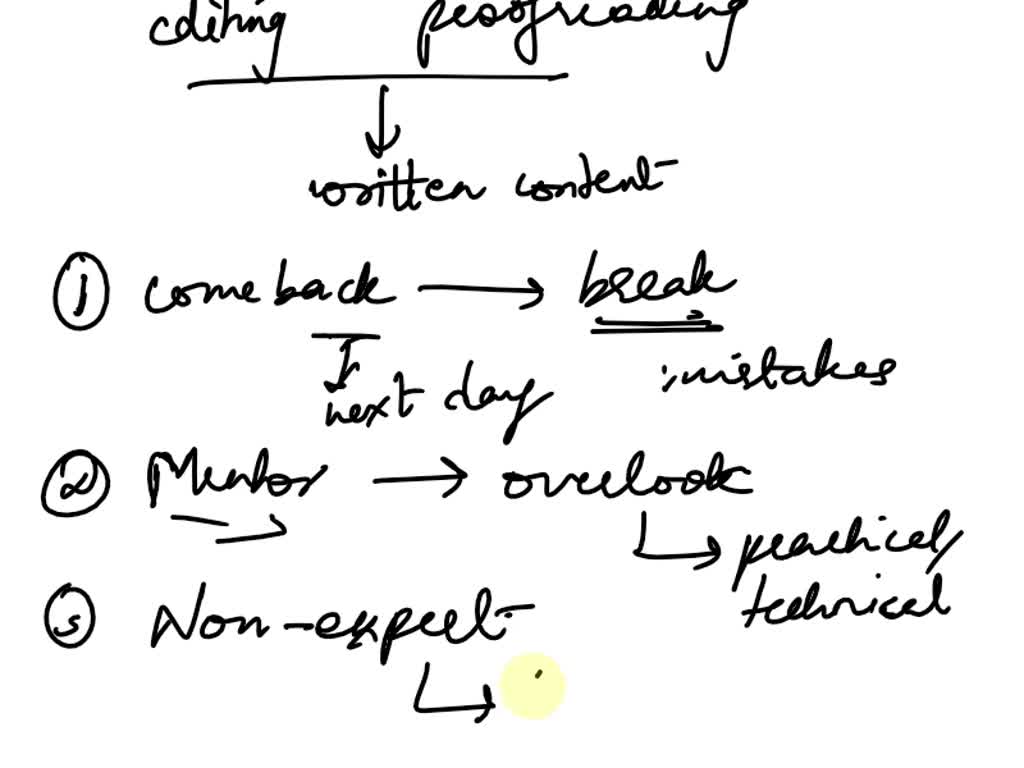 editing proofreading
written content
① comeback → break
next day : mistakes
② Mentor → overlook
practical/
technical
③ Non-expert